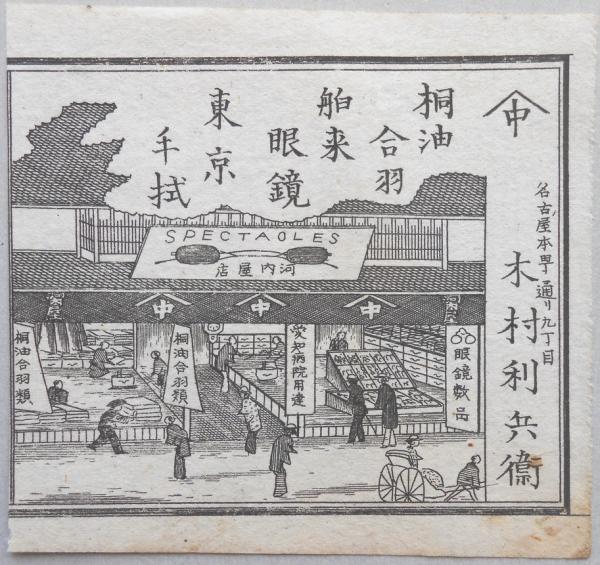 中
名古屋本町通り九丁目
木村利兵衞
桐油
合羽
舶来
眼鏡
東京
手拭
SPECTAOLES
河内屋店
中
中
中
眼鏡數品
愛知病院用達
桐油合羽類
桐油合羽類